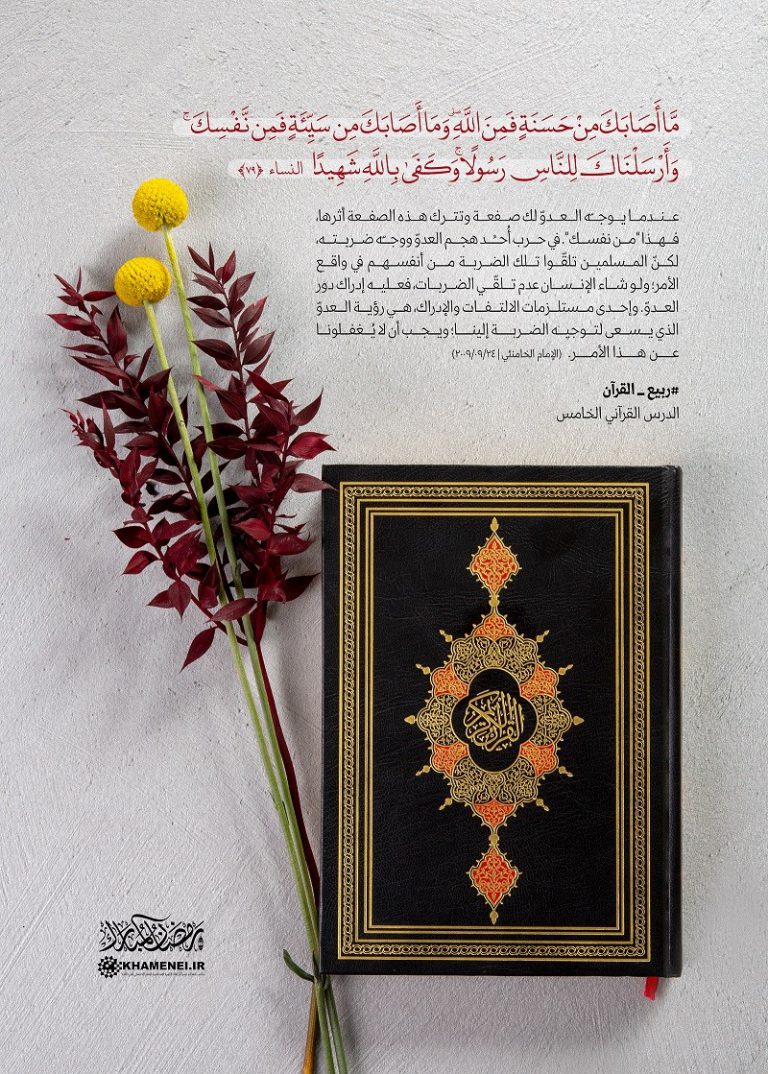 مَّا أَصَابَكَ مِنْ حَسَنَةٍ فَمِنَ اللَّهِ ۖ وَمَا أَصَابَكَ مِن سَيِّئَةٍ فَمِن نَّفْسِكَ ۚ
وَأَرْسَلْنَاكَ لِلنَّاسِ رَسُولًا ۚ وَكَفَىٰ بِاللَّهِ شَهِيدًا النساء ﴿٧٩﴾
عندما يوجّه العدوّ لك صفعة وتترك هذه الصفعة أثرها،
فهذا "من نفسك". في حرب أُحُد هجم العدوّ ووجّه ضربته،
لكنّ المسلمين تلقّوا تلك الضربة من أنفسهم في واقع
الأمر؛ ولو شاء الإنسان عدم تلقّي الضربات، فعليه إدراك دور
العدوّ. وإحدى مستلزمات الالتفات والإدراك، هي رؤية العدوّ
الذي يسعى لتوجيه الضربة إلينا؛ ويجب أن لا يُغفلونا
عن هذا الأمر. (الإمام الخامنئي | ٢٠٠٩/٠٩/٢٤)
#ربيع _ القرآن
الدرس القرآني الخامس
القرآن الكريم
رمضان المبارك
KHAMENEI.IR